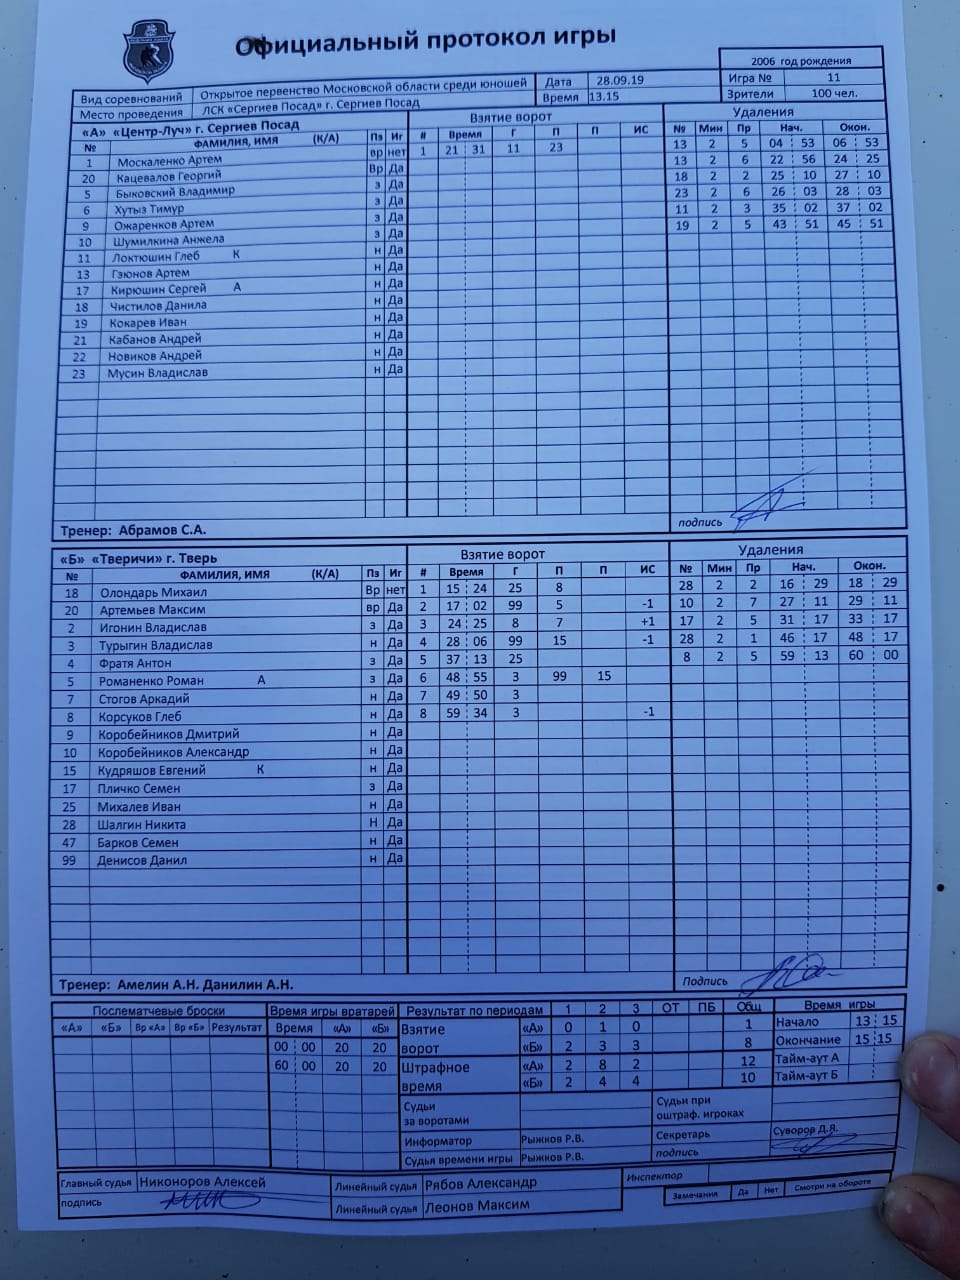 Официальный протокол игры
2006 год рождения
Вид соревнований Открытое первенство Московской области среди юношей Дата 28.09.19 Игра № 11
Место проведения ЛСК «Сергиев Посад» г. Сергиев Посад Время 13.15 Зрители 100 чел.
«А» «Центр-Луч» г. Сергиев Посад Взятие ворот Удаления
№ ФАМИЛИЯ, ИМЯ (К/А) Пз Иг # Время Г П П ИС № Мин Пр Нач. Окон.
1 Москаленко Артем вр нет 1 21 31 11 23 13 2 5 04 53 06 53
20 Кацевалов Георгий Вр Да 13 2 6 22 56 24 25
5 Быковский Владимир з Да 18 2 2 25 10 27 10
6 Хутыз Тимур з Да 23 2 6 26 03 28 03
9 Ожаренков Артем з Да 11 2 3 35 02 37 02
10 Шумилкина Анжела з Да 19 2 5 43 51 45 51
11 Локтюшин Глеб К н Да
13 Гзюнов Артем н Да
17 Кирюшин Сергей А н Да
18 Чистилов Данила н Да
19 Кокарев Иван н Да
21 Кабанов Андрей н Да
22 Новиков Андрей н Да
23 Мусин Владислав н Да
Тренер: Абрамов С.А. подпись
«Б» «Тверичи» г. Тверь Взятие ворот Удаления
№ ФАМИЛИЯ, ИМЯ (К/А) Пз Иг # Время Г П П ИС № Мин Пр Нач. Окон.
18 Олондарь Михаил Вр нет 1 15 24 25 8 28 2 2 16 29 18 29
20 Артемьев Максим вр Да 2 17 02 99 5 -1 10 2 7 27 11 29 11
2 Игонин Владислав з Да 3 24 25 8 7 +1 17 2 5 31 17 33 17
3 Турыгин Владислав н Да 4 28 06 99 15 -1 28 2 1 46 17 48 17
4 Фратя Антон з Да 5 37 13 25 8 2 5 59 13 60 00
5 Романенко Роман А з Да 6 48 55 3 99 15
7 Стогов Аркадий н Да 7 49 50 3
8 Корсуков Глеб н Да 8 59 34 3 -1
9 Коробейников Дмитрий н Да
10 Коробейников Александр н Да
15 Кудряшов Евгений К н Да
17 Пличко Семен з Да
25 Михалев Иван н Да
28 Шалгин Никита Н Да
47 Барков Семен н Да
99 Денисов Данил н Да
Тренер: Амелин А.Н. Данилин А.Н. Подпись
Послематчевые броски Время игры вратарей Результат по периодам 1 2 3 ОТ ПБ Общ Время игры
«А» «Б» Вр «А» Вр «Б» Результат Время «А» «Б» Взятие ворот «А» 0 1 0 1 Начало 13 15
00 00 20 20 «Б» 2 3 3 8 Окончание 15 15
60 00 20 20 Штрафное время «А» 2 8 2 12 Тайм-аут А
«Б» 2 4 4 10 Тайм-аут Б
Судьи за воротами Судьи при оштраф. игроках
Информатор Рыжков Р.В. Секретарь Суворов Д.Я.
Судья времени игры Рыжков Р.В. подпись
Главный судья Никоноров Алексей Линейный судья Рябов Александр Инспектор
подпись Линейный судья Леонов Максим Замечания Да Нет Смотри на обороте